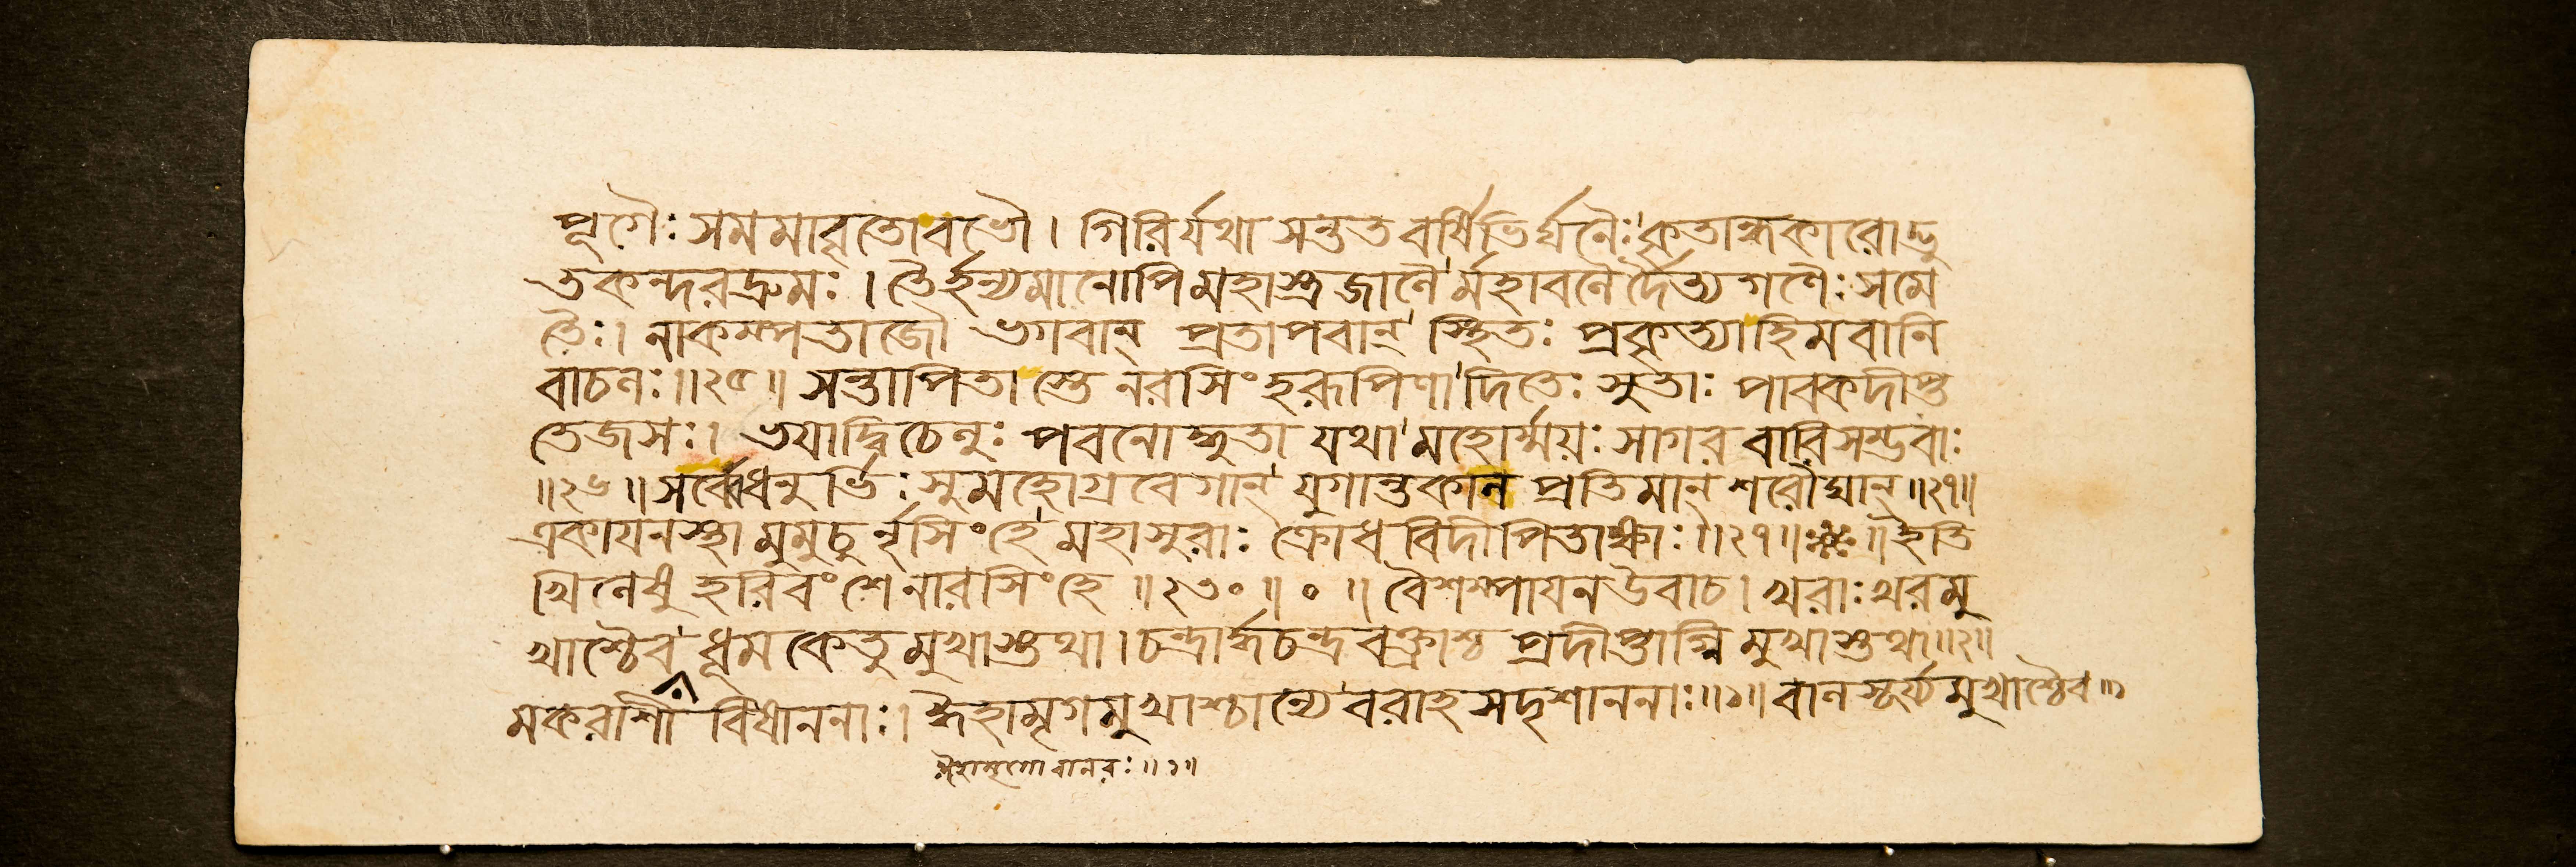 পূগৈঃ সমমাবৃতো বভৌ । গিরির্যথা সন্তত বর্ষিভির্ঘনৈঃ কৃতান্ধকারোদ্ভু
তকন্দরদ্রুমঃ । তৈর্হন্যমানোপি মহাস্ত্রজালৈ র্মহাবলৈ র্দৈত্যগণৈঃ সমে
তৈঃ । নাকম্পতাজৌ ভগবান্ প্রতাপবান্ স্থিতঃ প্রকৃত্যাহিমবানি
বাচলঃ ॥২৫॥ সন্তাপিতা স্তে নরসিংহরূপিণা দিতেঃ সুতাঃ পাবকদীপ্ত
তেজসঃ । ভয়াদ্বিচেলুঃ পবনোদ্ধুতা যথা মহোর্ম্ময়ঃ সাগর বারিসম্ভবাঃ
॥২৬॥ সর্ব্বে ধনুর্ভিঃ সুমহোগ্রবেগান্ যুগান্তকাল প্রতিমান্ শরৌঘান্ ॥২৭॥
একায়নস্থা মুমুচু র্নৃসিংহে মহাসুরাঃ ক্রোধ বিদীপিতাঙ্গাঃ ॥২৭॥ ॥ ইতি
খিলেষু হরিবংশে নারসিংহে ॥২৩০॥ ০ ॥ বৈশম্পায়ন উবাচ । খরাঃ খরমু
খাশ্চৈব ধূমকেতু মুখাস্তথা । চন্দ্রার্দ্ধচন্দ্রবক্ত্রাশ্চ প্রদীপ্তাগ্নি মুখাস্তথা ॥২॥
মকরাশীবিষাননাঃ । ঈহামৃগমুখাশ্চান্যে বরাহসদৃশাননাঃ ॥১॥ বালসূর্য্যমুখাশ্চৈব
ঈহামৃগো বানরঃ ॥১॥